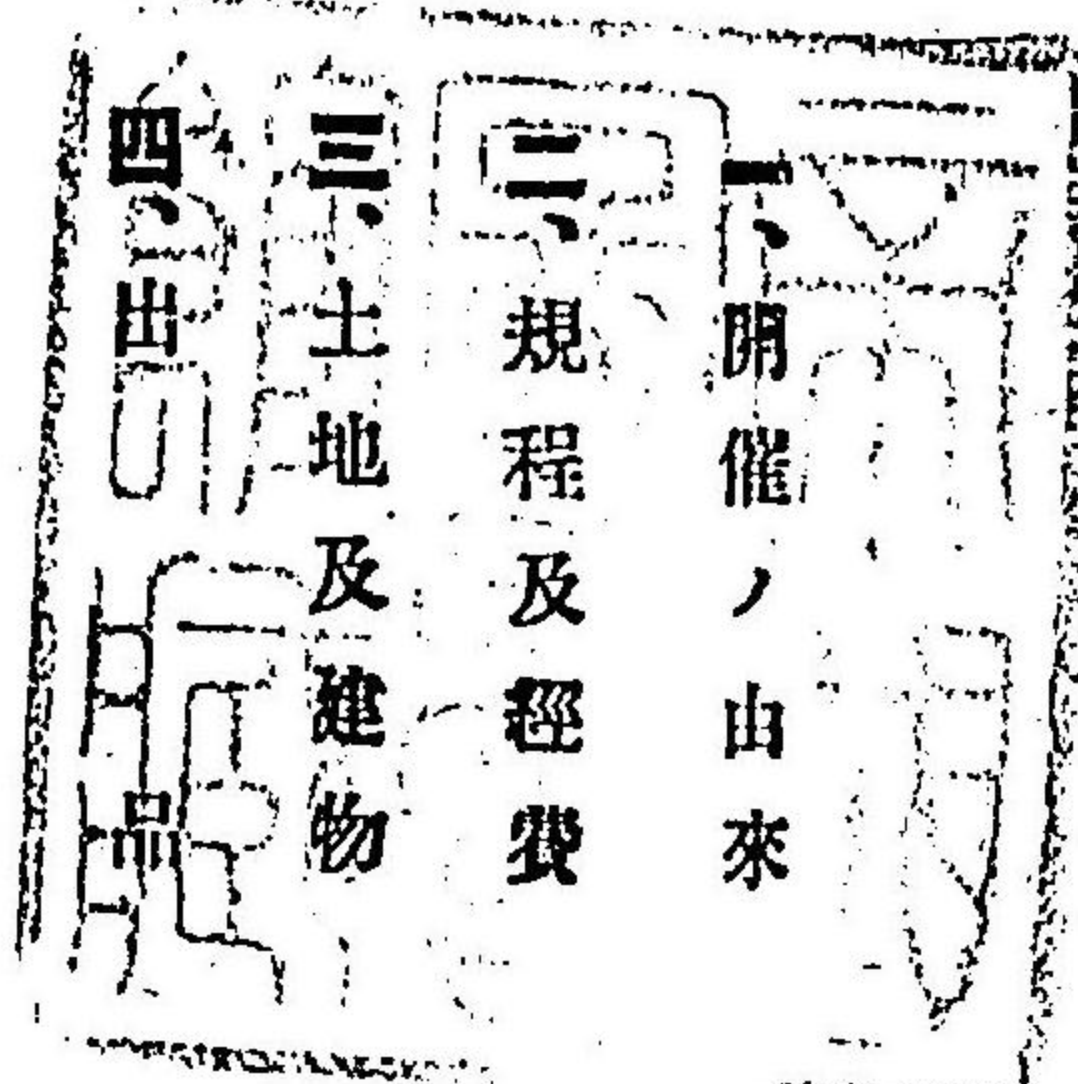 一、開催ノ由來
二、規程及經費
三、土地及建物
四、出品